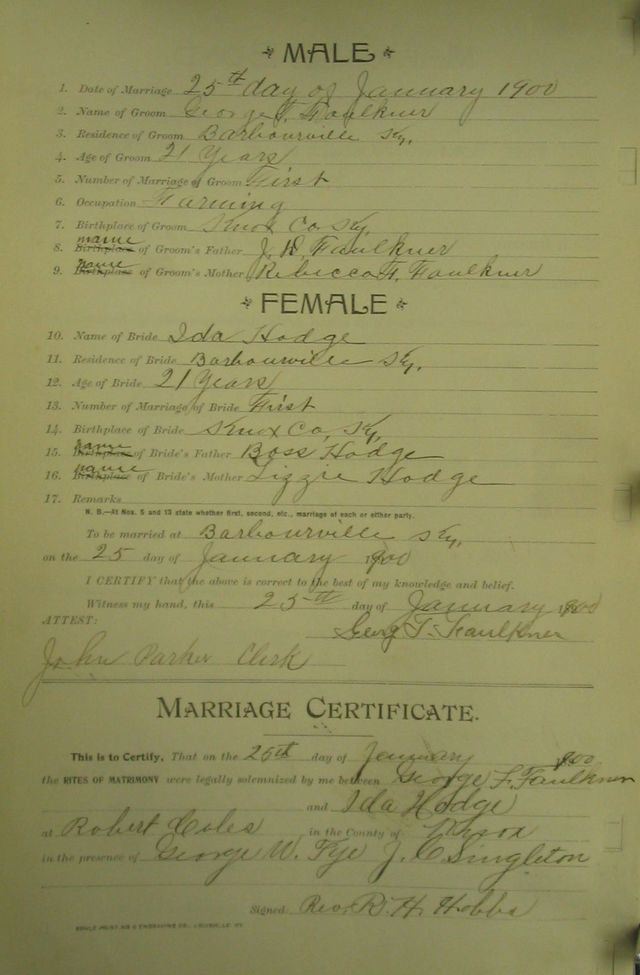 MALE
1. Date of Marriage 25th day of January 1900
2. Name of Groom George F. Faulkner
3. Residence of Groom Barbourville Ky.
4. Age of Groom 21 Years
5. Number of Marriage of Groom First
6. Occupation Farming
7. Birthplace of Groom Knox Co Ky.
name
8. Birthplace of Groom's Father J. D. Faulkner
name
9. Birthplace of Groom's Mother Rebecca F. Faulkner
FEMALE
10. Name of Bride Ida Hodge
11. Residence of Bride Barbourville Ky.
12. Age of Bride 21 Years
13. Number of Marriage of Bride First
14. Birthplace of Bride Knox Co, Ky,
name
15. Birthplace of Bride's Father Boss Hodge
name
16. Birthplace of Bride's Mother Lizzie Hodge
17. Remarks
N. B.—At Nos. 5 and 13 state whether first, second, etc., marriage of each or either party.
To be married at Barbourville Ky,
on the 25 day of January 1900
I CERTIFY that the above is correct to the best of my knowledge and belief.
Witness my hand, this 25th day of January 1900
ATTEST: Georg F. Faulkner
John Parker Clerk
MARRIAGE CERTIFICATE.
This is to Certify, That on the 25th day of January 1900
the RITES OF MATRIMONY were legally solemnized by me between George F. Faulkner
and Ida Hodge
at Robert Coles in the County of Knox
in the presence of George W. Tye J. C Singleton
Signed Rev. R. H. Hobbs